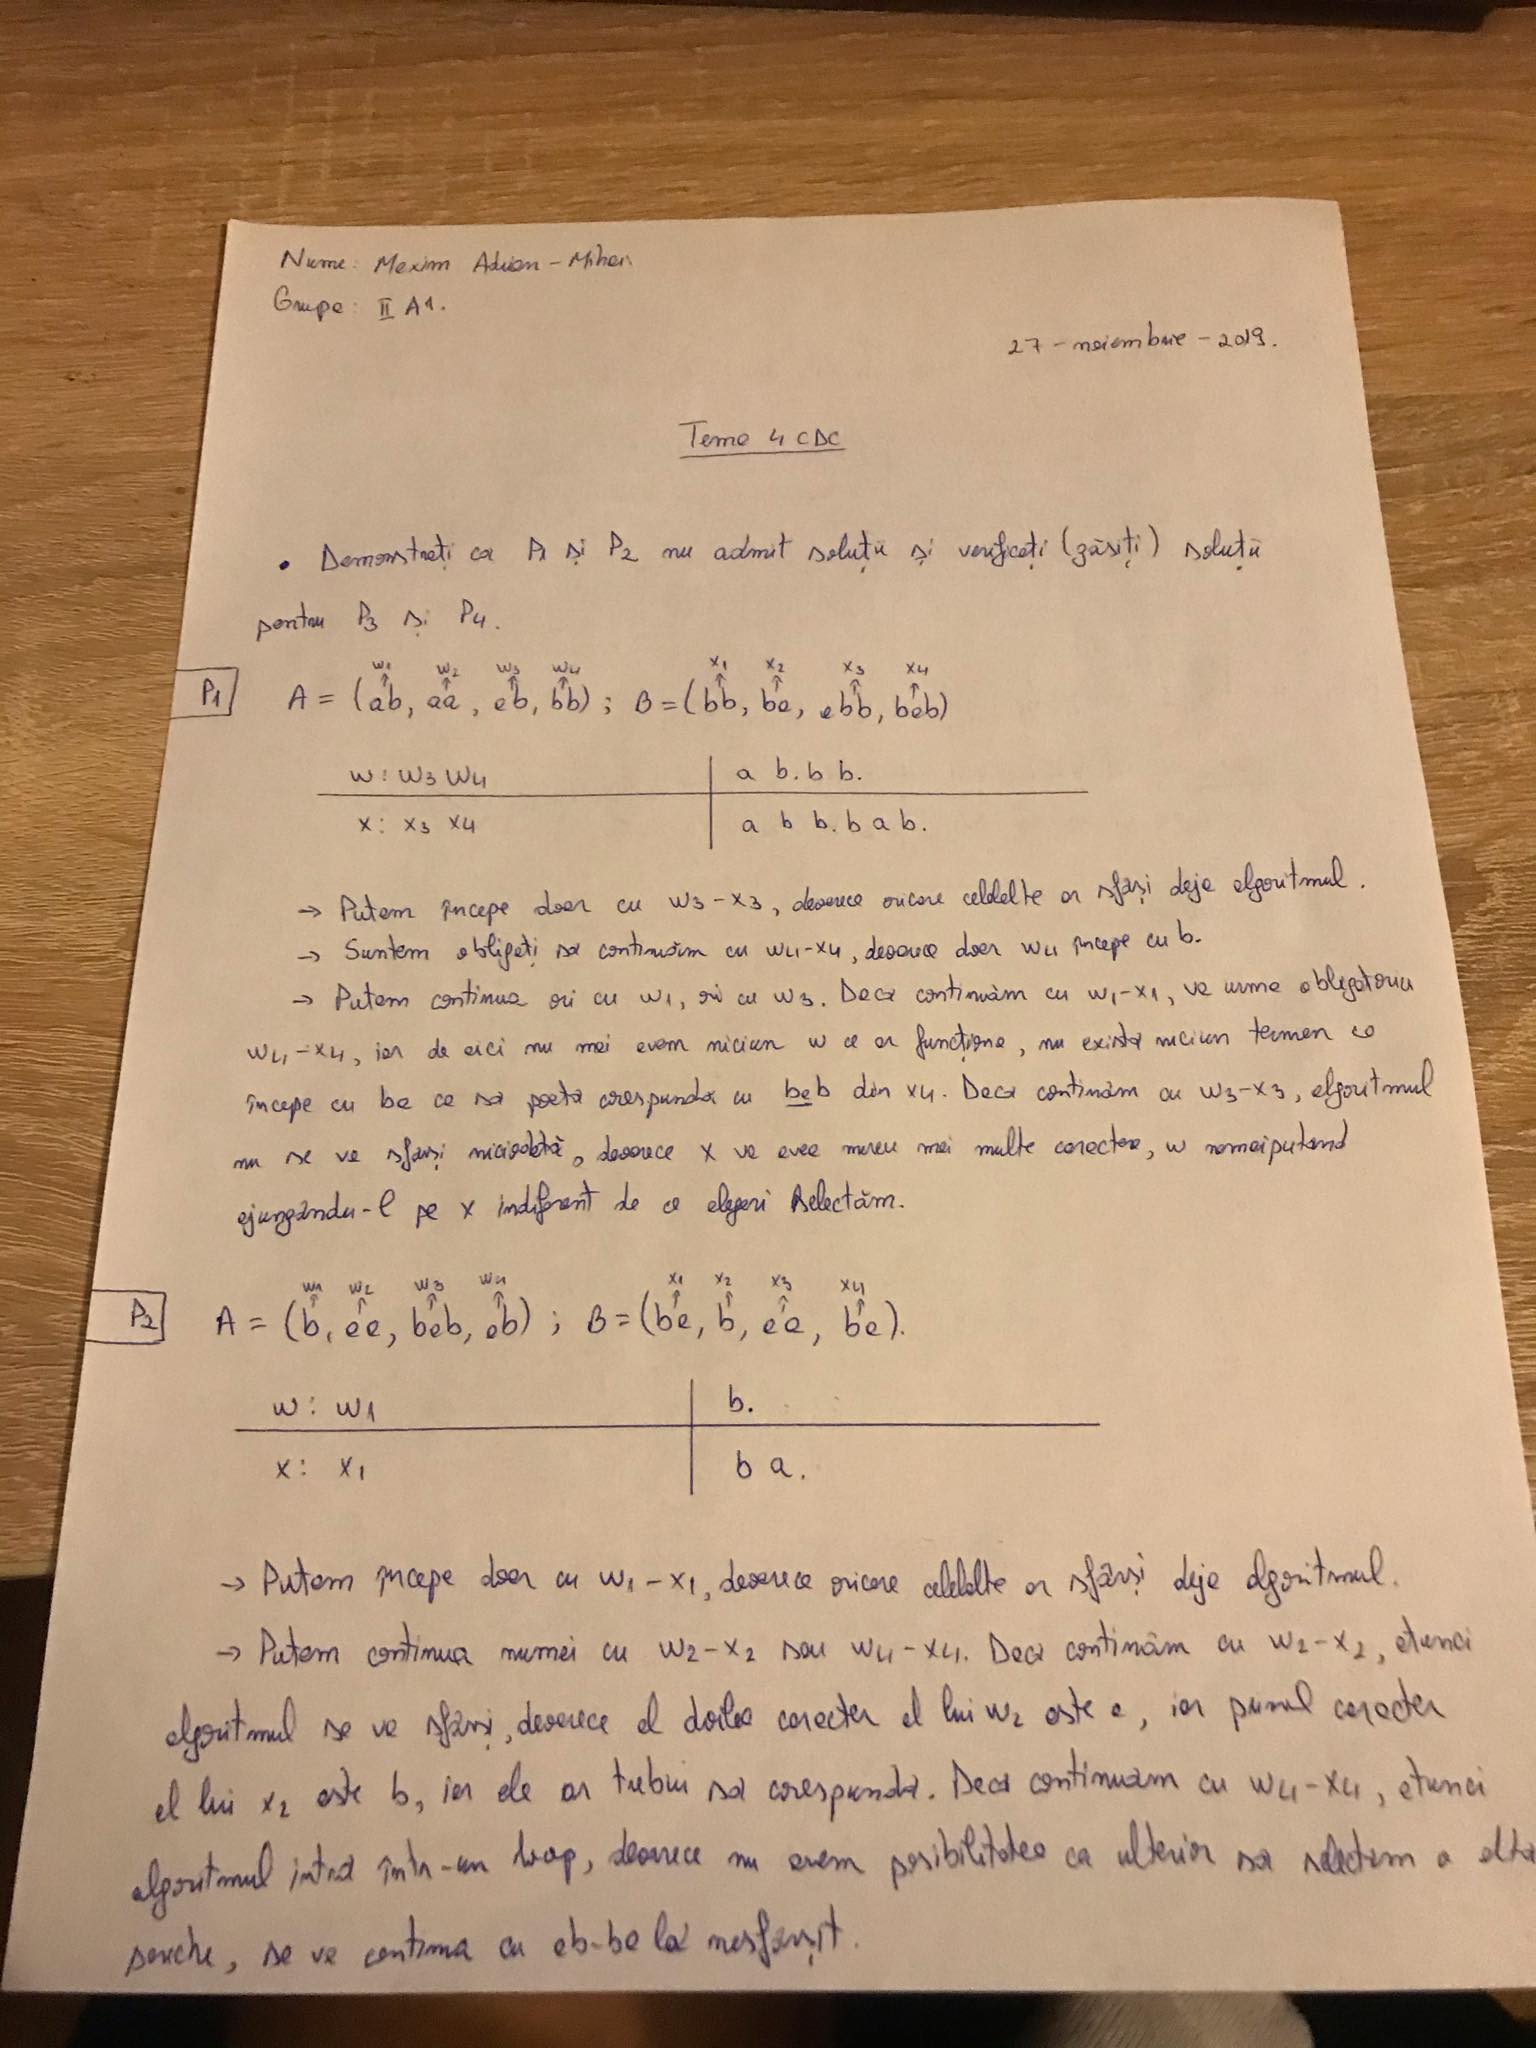 Nume: Maxim Adrian-Mihai
Grupa: II A1.
27-noiembrie-2019.
Tema 4 CDC
• Demonstrați ca P1 și P2 nu admit soluții și verificați (găsiți) soluții
pentru P3 și P4.
w1 w2 w3 w4 x1 x2 x3 x4
P1 A = (ab, aa, ab, bb); B = (bb, ba, abb, bab)
w: w3 w4 | a b. b b.
x: x3 x4 | a b b. b a b.
→ Putem începe doar cu w3-x3, deoarece oricare celelalte ar sfârși deja algoritmul.
→ Suntem obligați sa continuăm cu w4-x4, deoarece doar w4 începe cu b.
→ Putem continua ori cu w1, ori cu w3. Daca continuăm cu w1-x1, va urma obligatoriu
w4-x4, iar de aici nu mai avem niciun w ce ar funcționa, nu exista niciun termen ce
începe cu ba ce sa poata corespunda cu bab din x4. Daca continăm cu w3-x3, algoritmul
nu se va sfârși niciodată, deoarece x va avea mereu mai multe caractere, w nemaiputand
ajungându-l pe x indiferent de ce alegeri selectăm.
w1 w2 w3 w4 x1 x2 x3 x4
P2 A = (b, aa, bab, ab); B = (ba, b, aa, ba).
w: w1 | b.
x: x1 | b a.
→ Putem începe doar cu w1-x1, deoarece oricare celelalte ar sfârși deja algoritmul.
→ Putem continua numai cu w2-x2 sau w4-x4. Daca continăm cu w2-x2, atunci
algoritmul se va sfârși, deoarece al doilea caracter al lui w2 este a, iar primul caracter
al lui x2 este b, iar ele ar trebui sa corespunda. Daca continuam cu w4-x4, atunci
algoritmul intra într-un loop, deoarece nu avem posibilitatea ca ulterior sa selectam o alta
pereche, se va continua cu ab-ba la nesfarșit.